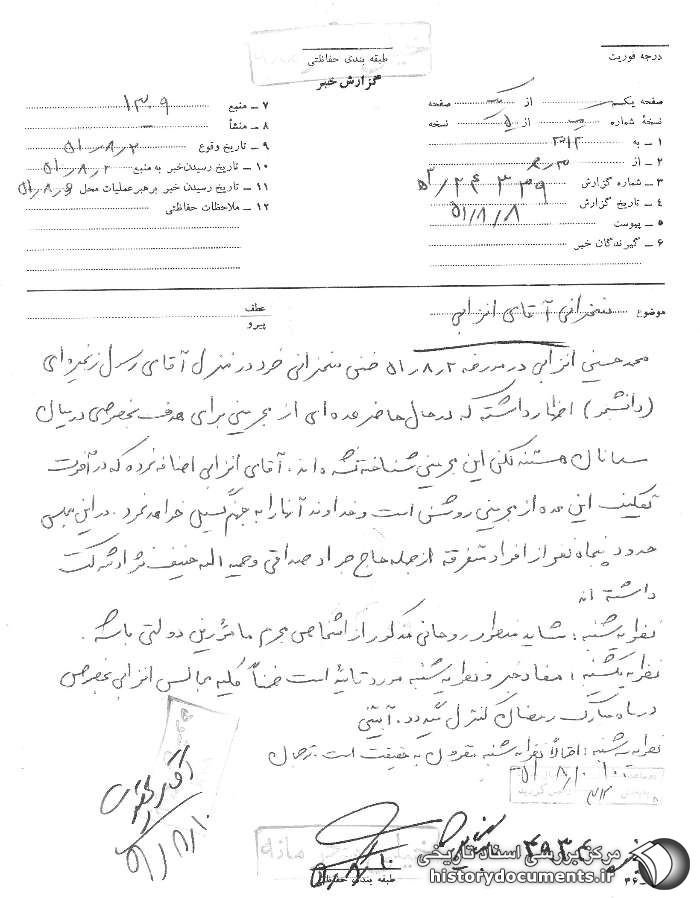 درجه فوریت
طبقه بندی حفاظتی
گزارش خبر
صفحه یک از یک صفحه
نسخه شماره از نسخه
۱ ـ به ۳۱۲
۲ ـ از
۳ ـ شماره گزارش
۴ ـ تاریخ گزارش ۵۱/۸/۸
۵ ـ پیوست
۶ ـ گیرندگان خبر
۷ ـ منبع ۱۳۰۹
۸ ـ منشأ ـ
۹ ـ تاریخ وقوع ۵۱/۸/۲
۱۰ ـ تاریخ رسیدن خبر به منبع ۵۱/۸/۲
۱۱ ـ تاریخ رسیدن خبر برهبر عملیات محل ۵۱/۸/۶
۱۲ ـ ملاحظات حفاظتی
موضوع سخنرانی آقای انزابی
عطف
پیرو
محمدحسین انزابی در مورخه ۵۱/۸/۲ ضمن سخنرانی خود در منزل آقای رسول زنجیره‌ای
(دانشجو) اظهار داشته که در حال حاضر عده‌ای از مجرمین برای هدف بخصوصی دنبال
مسلمانان هستند لکن این مجرمین شناخته نشده‌اند. آقای انزابی اضافه نموده که در آخرت
تکلیف این عده از مجرمین روشن است و خداوند آنها را به جهنم گسیل خواهد نمود. در این مجلس
حدود پنجاه نفر از افراد متفرقه از جمله حاج جواد صداقی و حمید اله حنیف نژاد شرکت
داشته‌اند
نظریه شنبه: شاید منظور روحانی مذکور از اشخاص مجرم مامورین دولتی باشد.
نظریه یکشنبه: مفاد خبر و نظریه شنبه مورد تائید است ضمناً کلیه مجالس انزابی بخصوص
در ماه مبارک رمضان کنترل میگردد. آبتین
نظریه سه‌شنبه: احتمالاً نظریه شنبه مقرون به حقیقت است.
۵۱/۸/۱۰
طبقه بندی حفاظتی
مرکز بررسی اسناد تاریخی
historydocuments.ir